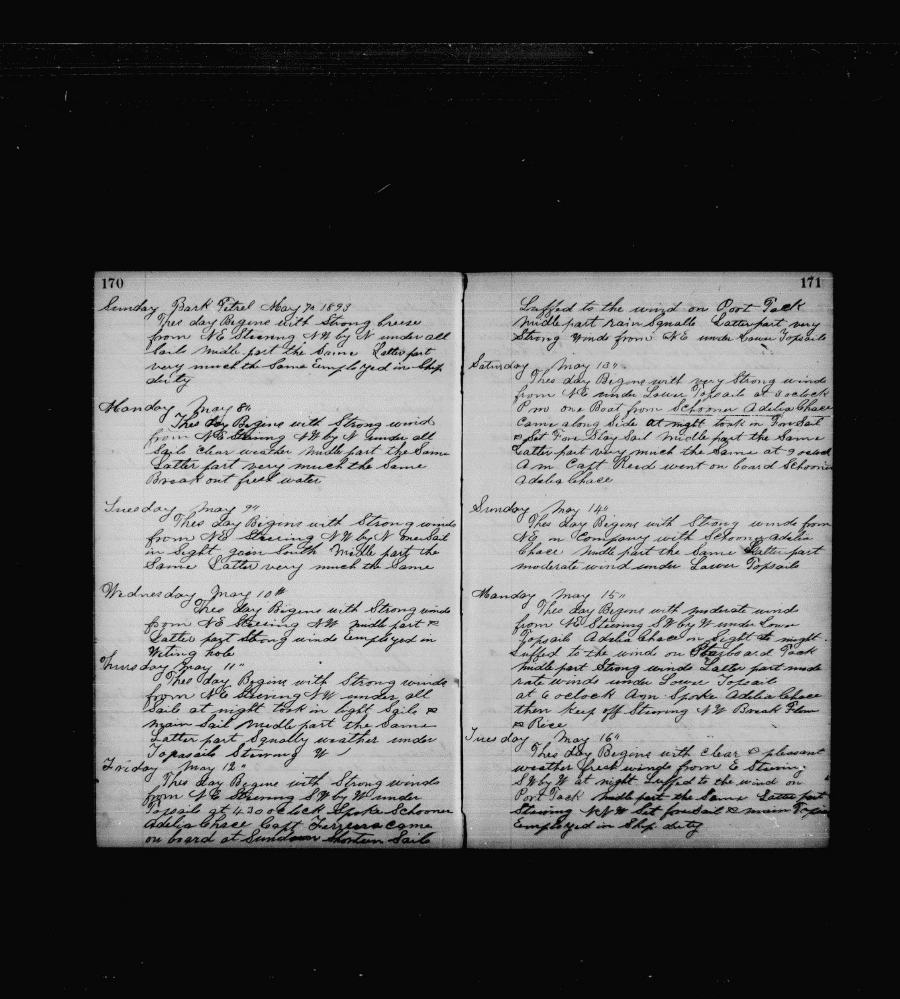 170
Sunday Bark Petrel May 7" 1893
Thes day Begins with Strong breese
from NE Steering NW by N under all
Sails midle part the Same Latter part
very much the Same Employed in Ship
duty
Monday May 8"
Thes day Begins with Strong wind
from NE Steering NW by N under all
Sails Clear weather midle part the Same
Latter part very much the Same
Break out fresh water
Tuesday May 9"
Thes day Bigins with Strong winds
from NE Steering NW by N one Sail
in Sight goin South Midle part the
Same Latter very much the Same
Wednesday May 10th
Thes day Bigene with Strong winds
from NE Steering NW midle part &
Latter part Strong winds employed in
Weting hole
Thursday May 11"
Thes day Begins with Strong winds
from NE Steering NW under all
Sails at night took in light Sails &
main Sail midle part the Same
Latter part Squally weather under
Topsails Steering W
Friday May 12"
Thes day Begins with Strong winds
from NE Steering SW by W under
Topsails at 4.30 oClock Spoke Schooner
Adelia Chace Capt Ferreira came
on board at Sundown Shorten Sails
171
Luffed to the wind on Port Tack
midle part rain Squalls Latter part very
Strong winds from NE under Lower Topsails
Saturday May 13"
Thes day Begins with very Strong winds
from NE under Lower Topsails at 3 oclock
P m one Boat from Schooner Adelia Chace
Came along Side at night took in ForSail
& Set Fore Stay Sail midle part the Same
Latter part very much the Same at 9 oclock
Am Capt Reed went on board Schooner
Adelia Chace
Sunday May 14"
Thes day Begins with Strong winds from
NE in Company with Schooner Adelia
Chace midle part the Same Latter part
moderate wind under Lower Topsails
Monday May 15"
Thes day Begins with moderate wind
from NE Steering SW by W under Lower
Topsails Adelia Chace in Sight at night
Luffed to the wind on Starboard Tack
midle part Strong winds Latter part mode
rate winds under Lower Topsails
at 6 oclock Am Spoke Adelia Chace
then keep off Steering NW Break Flour
& Rice
Tuesday May 16"
Thes day Begins with clear & pleasant
weather fresh winds from E Steering
SW by W at night Luffed to the wind on
Port Tack midle part the Same Latter part
Steering NNW Set forSail & main Topsail
Employed in Ship duty